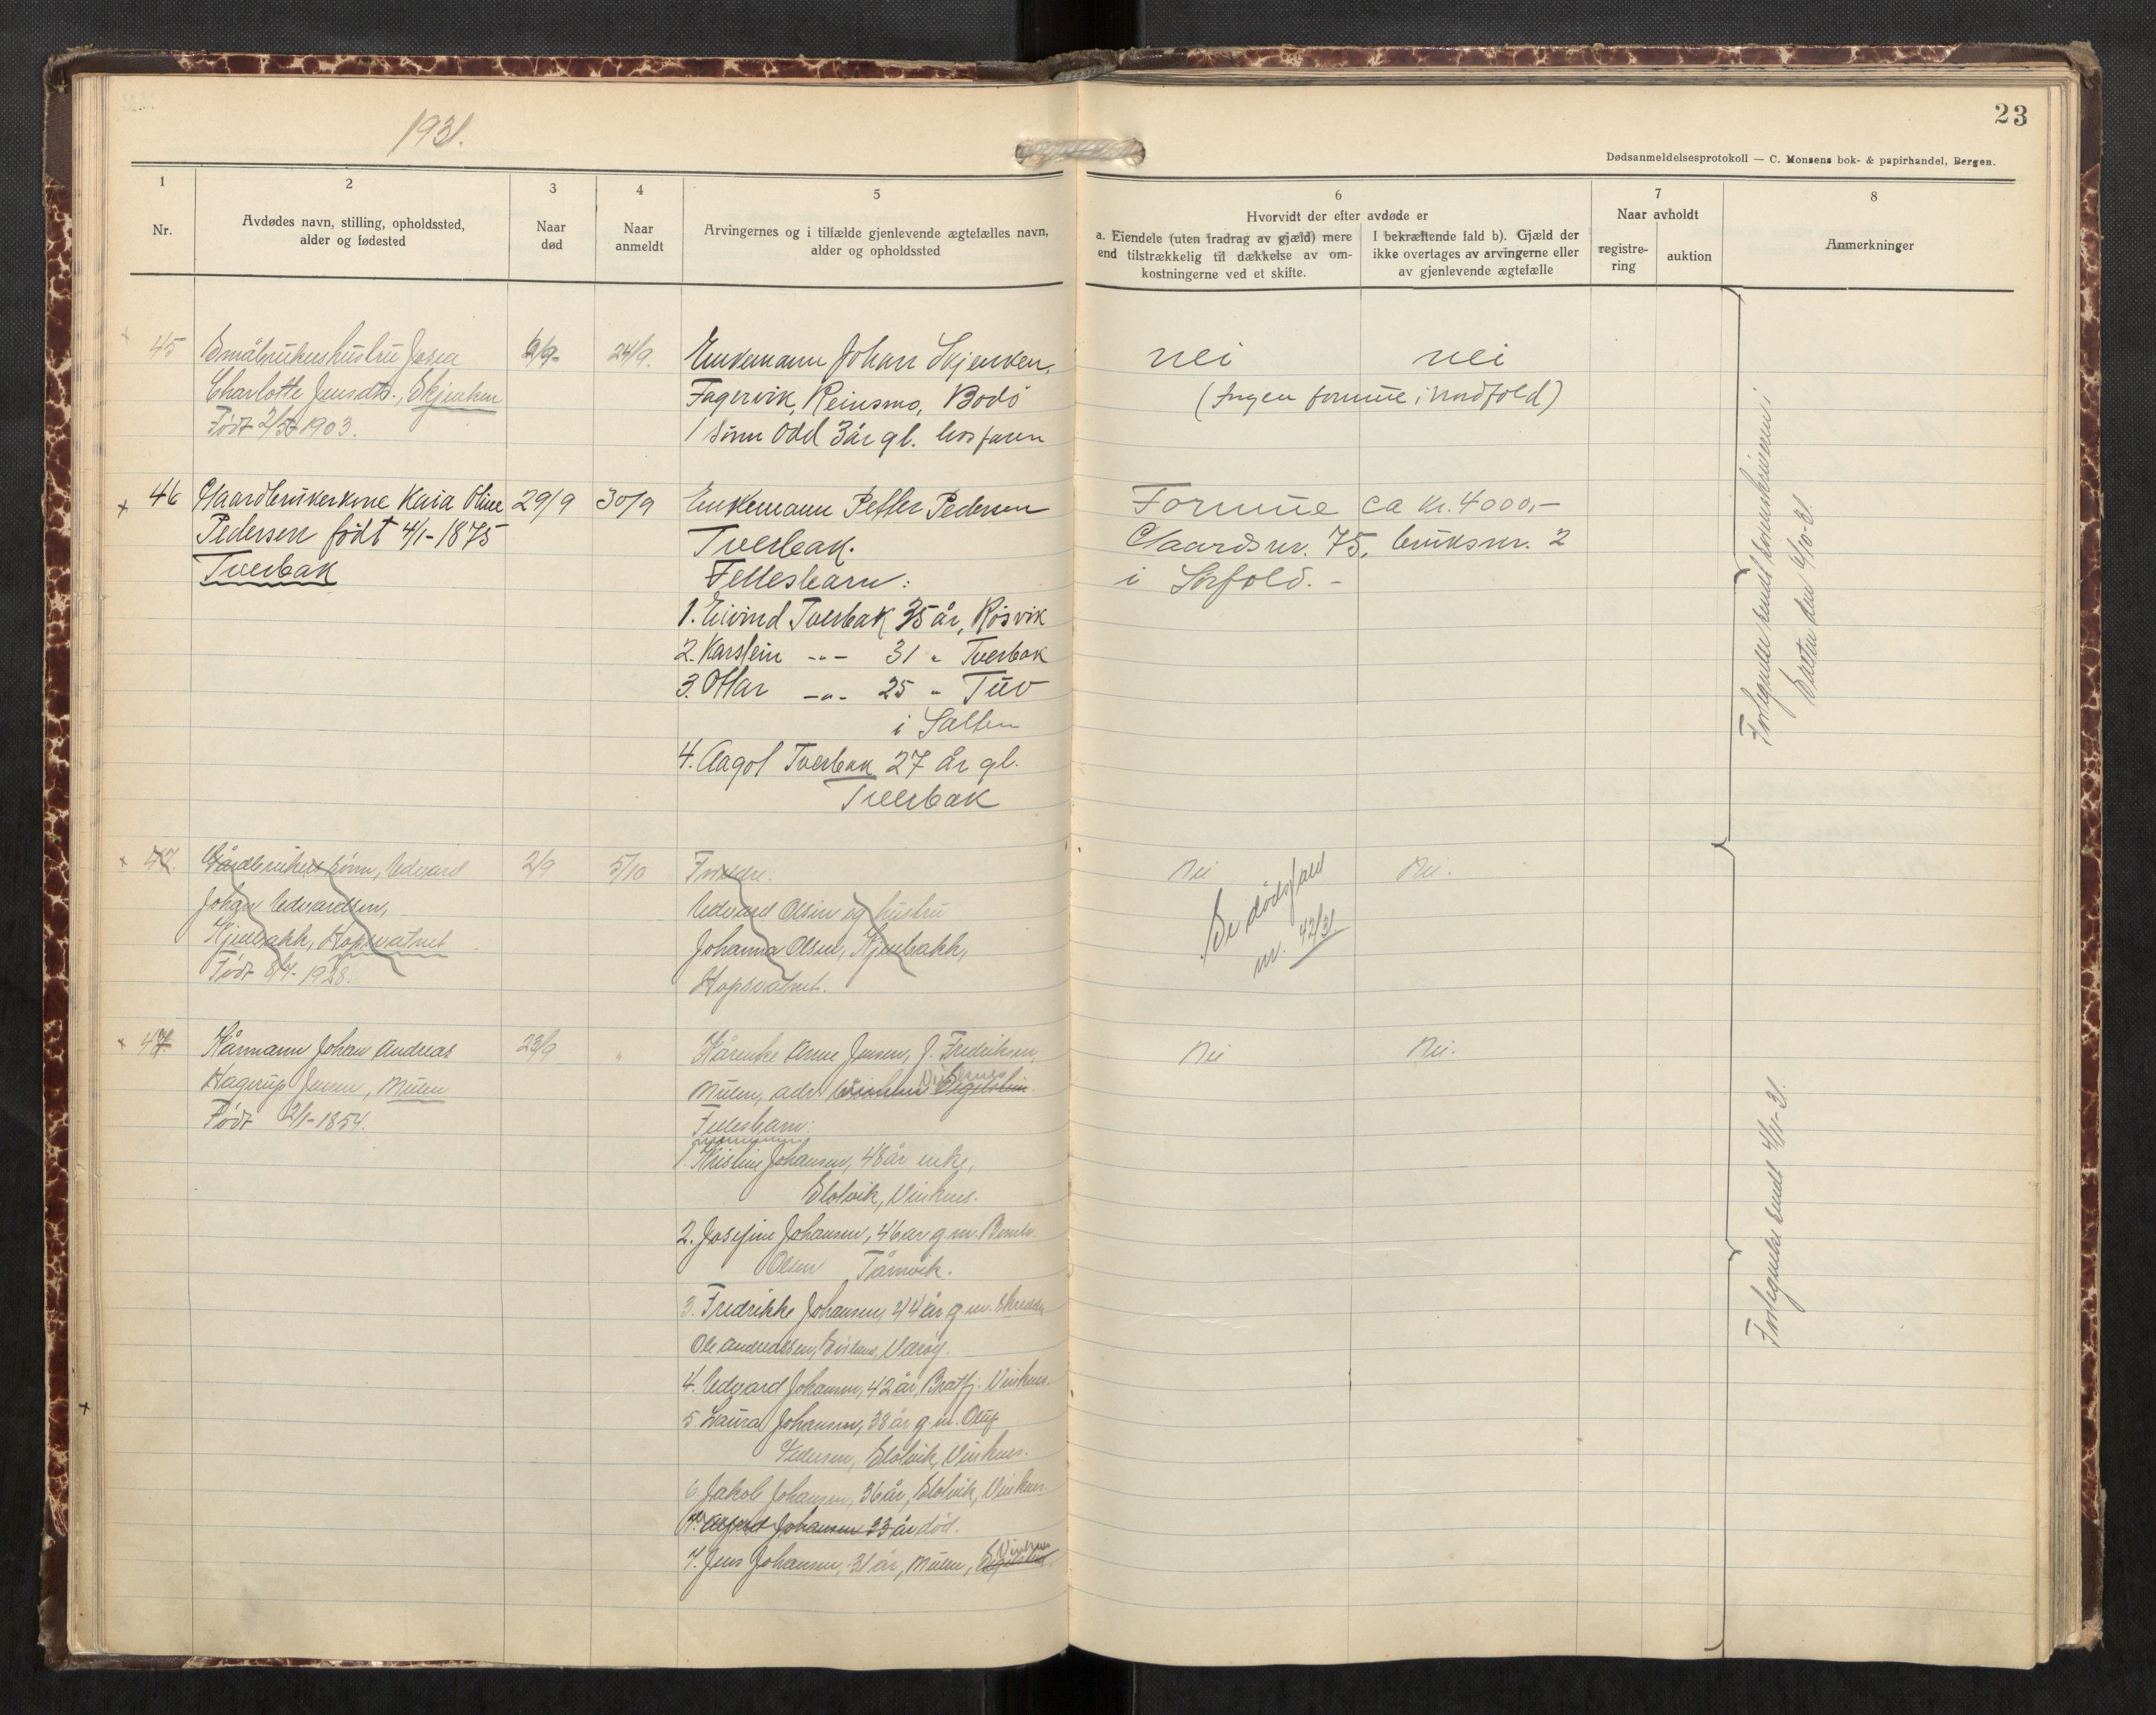 1931.
23
Dødsanmeldelsesprotokoll — C. Monsens bok- & papirhandel, Bergen.
1
Nr.
2
Avdødes navn, stilling, opholdssted,
alder og fødested
3
Naar
død
4
Naar
anmeldt
5
Arvingernes og i tilfælde gjenlevende ægtefælles navn,
alder og opholdssted
6
Hvorvidt der efter avdøde er
a. Eiendele (uten fradrag av gjæld) mere
end tilstrækkelig til dækkelse av om-
kostningerne ved et skifte.
I bekræftende fald b). Gjæld der
ikke overtages av arvingerne eller
av gjenlevende ægtefælle
7
Naar avholdt
registre-
ring
auktion
8
Anmerkninger
45
Småbrukerhustru Josea
Charlotte Jensdt., Skjenken
Født 2/5 1903.
9/9
24/9.
Enkemann Johan Skjenken,
Fagervik, Reinsmo, Bodø
1 sønn Odd 3 år gl. hos faren
nei
nei
(Ingen formue i Nordfold)
46
Gaardbrukerkone Kaia Oline
Pedersen født 4/1-1875
Tverbak
29/9
30/9
Enkemann Petter Pedersen
Tverbak.
Fellesbarn:
1. Eivind Tverbak 35 år, Røsvik
2. Karstein -"- 31 " Tverbak
3. Ottar -"- 25 " Tuv
i Salten
4. Aagot Tverbak 27 år gl.
Tverbak
Formue ca kr. 4000,-
Gaardsnr. 75, bruksnr. 2
i Sørfold. -
Fortegnelse sendt sorenskriveren i
Salten den 6/10-31.
47.
Gårdbrukers sønn, Edvard
Johan Edvardsen,
Kjerbakk, Hopsvatnet
Født 8/4-1928.
2/9
5/10
Foreldre:
Edvard Olsen og hustru
Johanna Olsen, Kjerbakk,
Hopsvatnet.
Nei
Nei.
Se dødsfald
nr. 42/31.
47.
Kårmann Johan Andreas
Hagerup Jensen, Mulen
Født 2/1-1854.
23/9
"
Kårenke Anne Jensen, f. Fredriksen,
Mulen, adr. Vinkenes
Fellesbarn:
1. Kristine Johansen, 48 år enke,
Slotvik, Vinkenes.
2. Josefine Johansen, 46 år g.m.
Olsen Tårnvik.
3. Fredrikke Johansen, 44 år g.m.
Ole Andreassen, Værøy.
4. Edvard Johansen, 42 år, Bratfj. Vinkenes.
5. Laura Johansen, 38 år g.m. Oluf
Pedersen, Slotvik, Vinkenes.
6. Jakob Johansen, 36 år, Slotvik, Vinkenes
7. Alfred Johansen 33 år død.
7. Jens Johansen, 31 år, Mulen, Vinkenes
Nei
Nei.
Fortegnelse sendt 4/11-31.